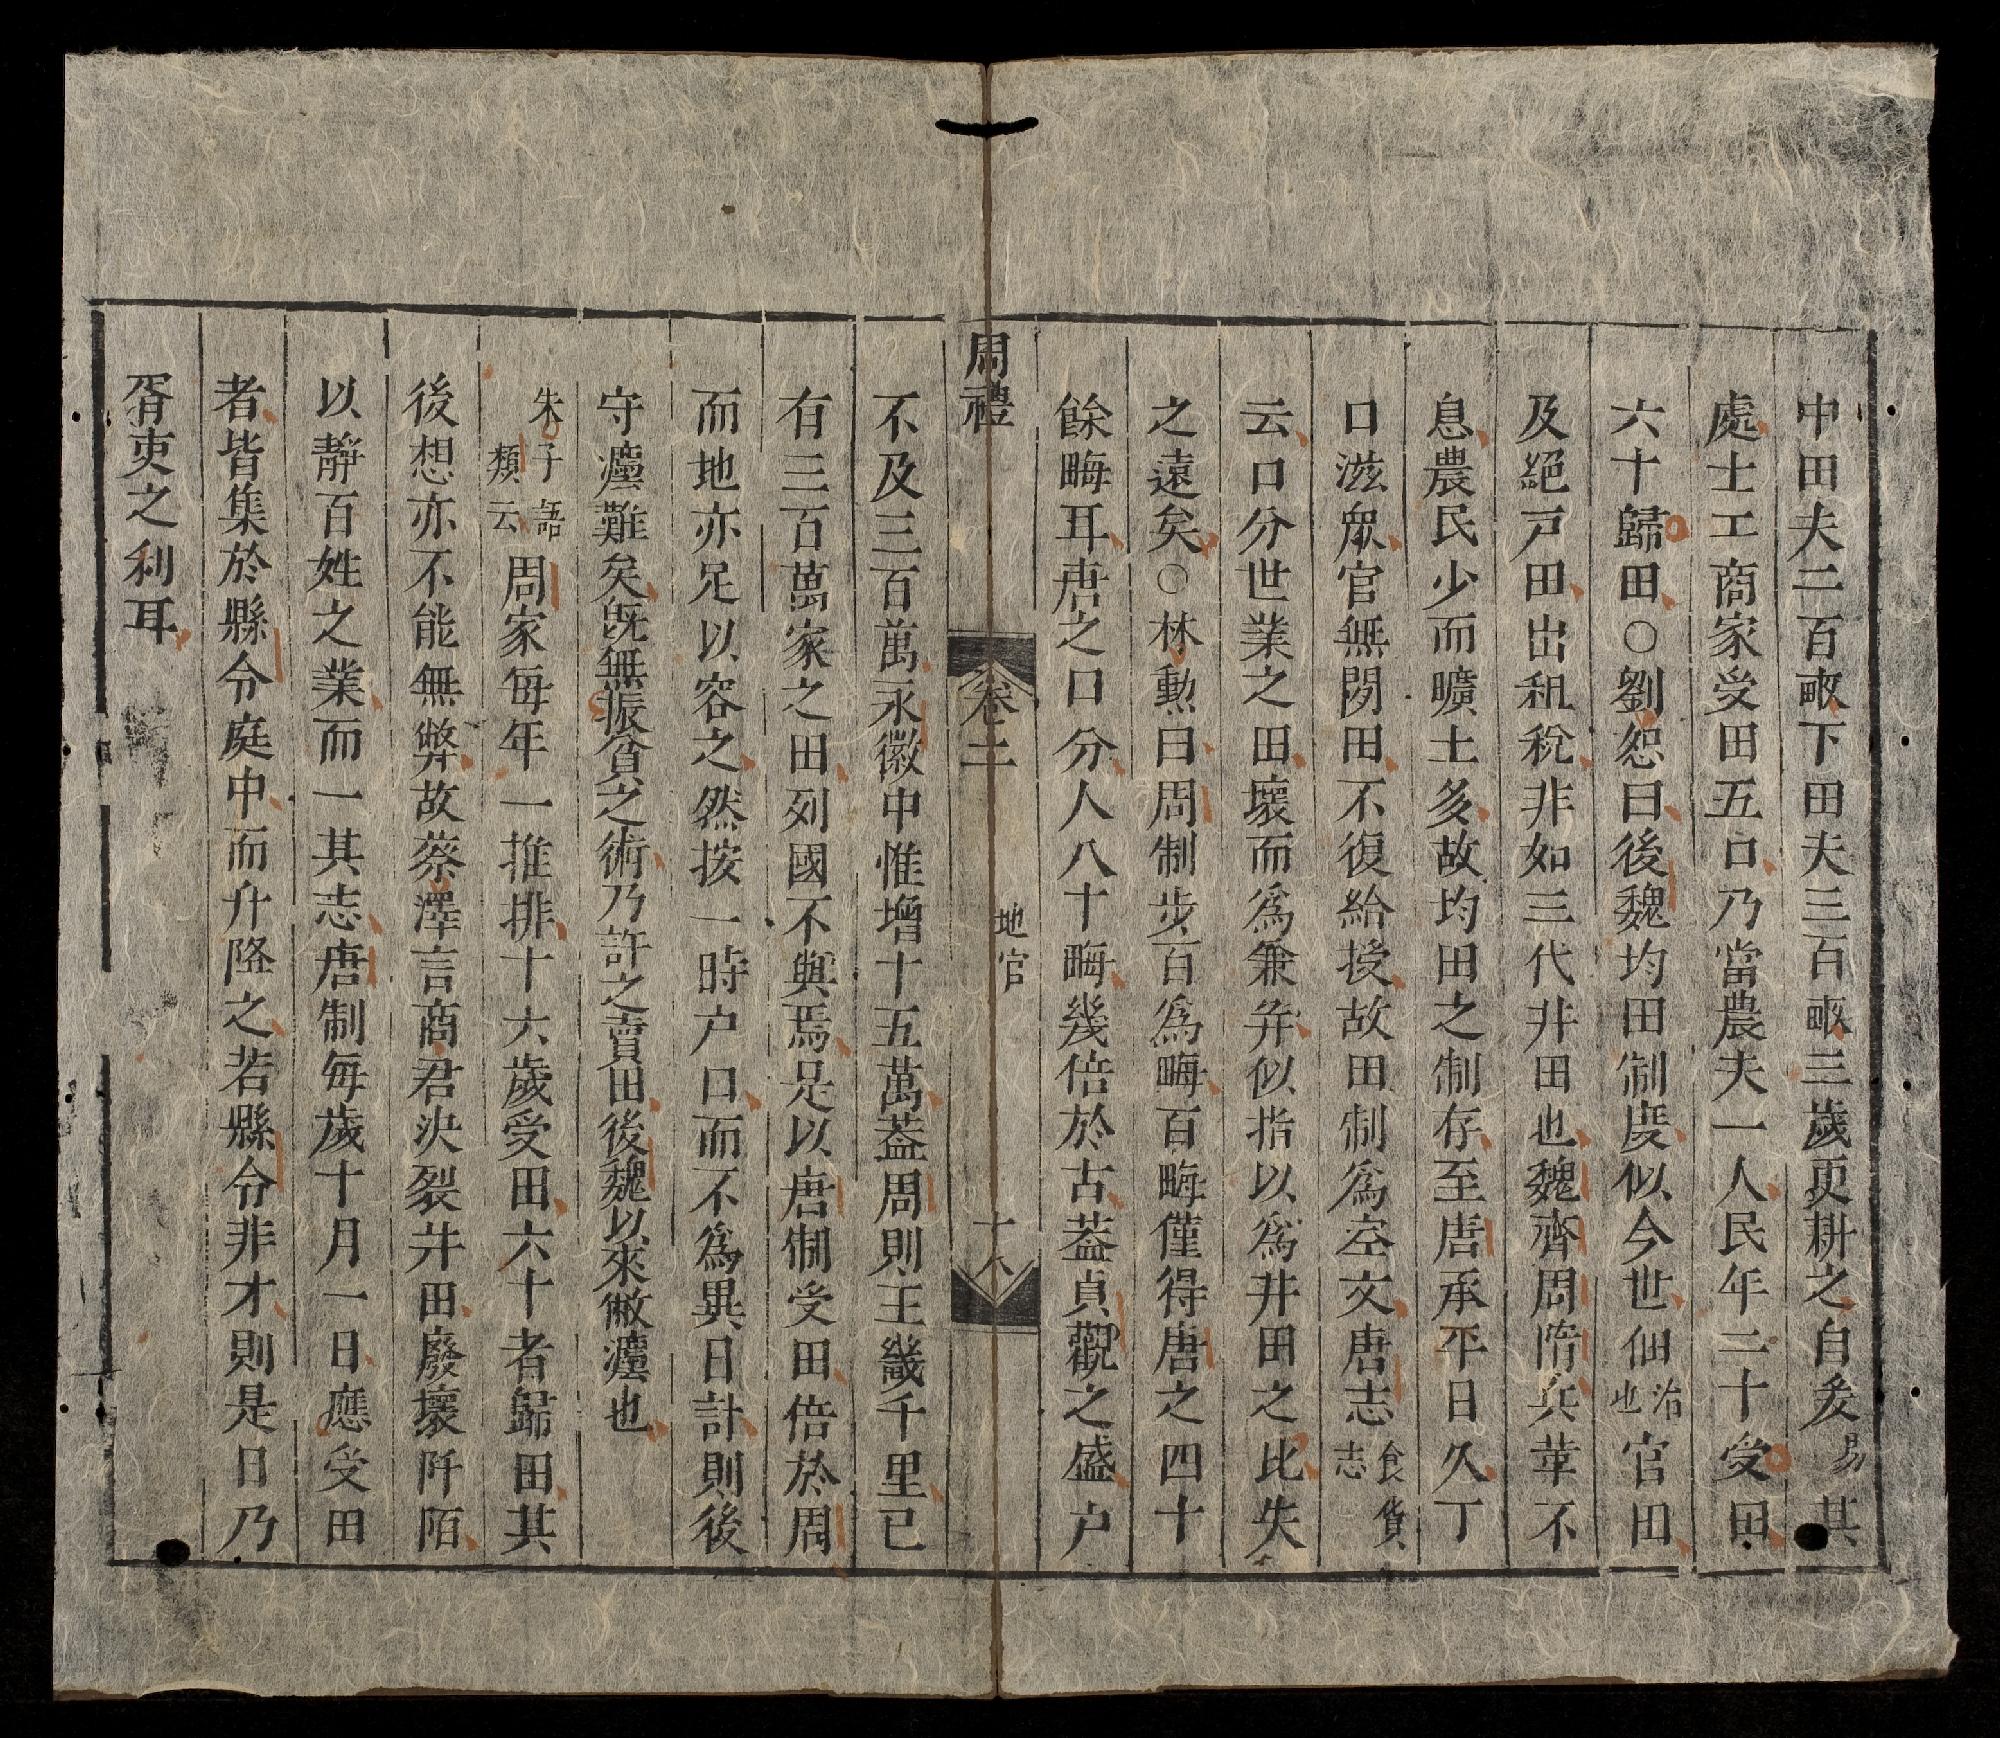 中田夫二百畝下田夫三百畝三歲更耕之自爰易其
處士工商家受田五口乃當農夫一人民年二十受田
六十歸田○劉恕曰後魏均田制度似今世佃治也官田
及絕戸田出租稅非如三代井田也魏齊周隋兵革不
息農民少而曠土多故均田之制存至唐承平日久丁
口滋衆官無閒田不復給授故田制爲空文唐志食貨志
云口分世業之田壞而爲兼并似指以爲井田之比失
之遠矣○林勳曰周制步百爲畮百畮僅得唐之四十
餘畮耳唐之口分人八十畮幾倍於古葢貞觀之盛户
周禮 卷二 地官 十八
不及三百萬永徽中惟增十五萬葢周則王畿千里已
有三百萬家之田列國不與焉足以唐制受田倍於周
而地亦足以容之然按一時户口而不爲異日計則後
守灋難矣旣無振貧之術乃許之賣田後魏以來敝灋也
朱子語類云周家每年一推排十六歲受田六十者歸田其
後想亦不能無弊故蔡澤言商君決裂井田廢壞阡陌
以靜百姓之業而一其志唐制每歲十月一日應受田
者皆集於縣令庭中而升降之若縣令非才則是日乃
胥吏之利耳